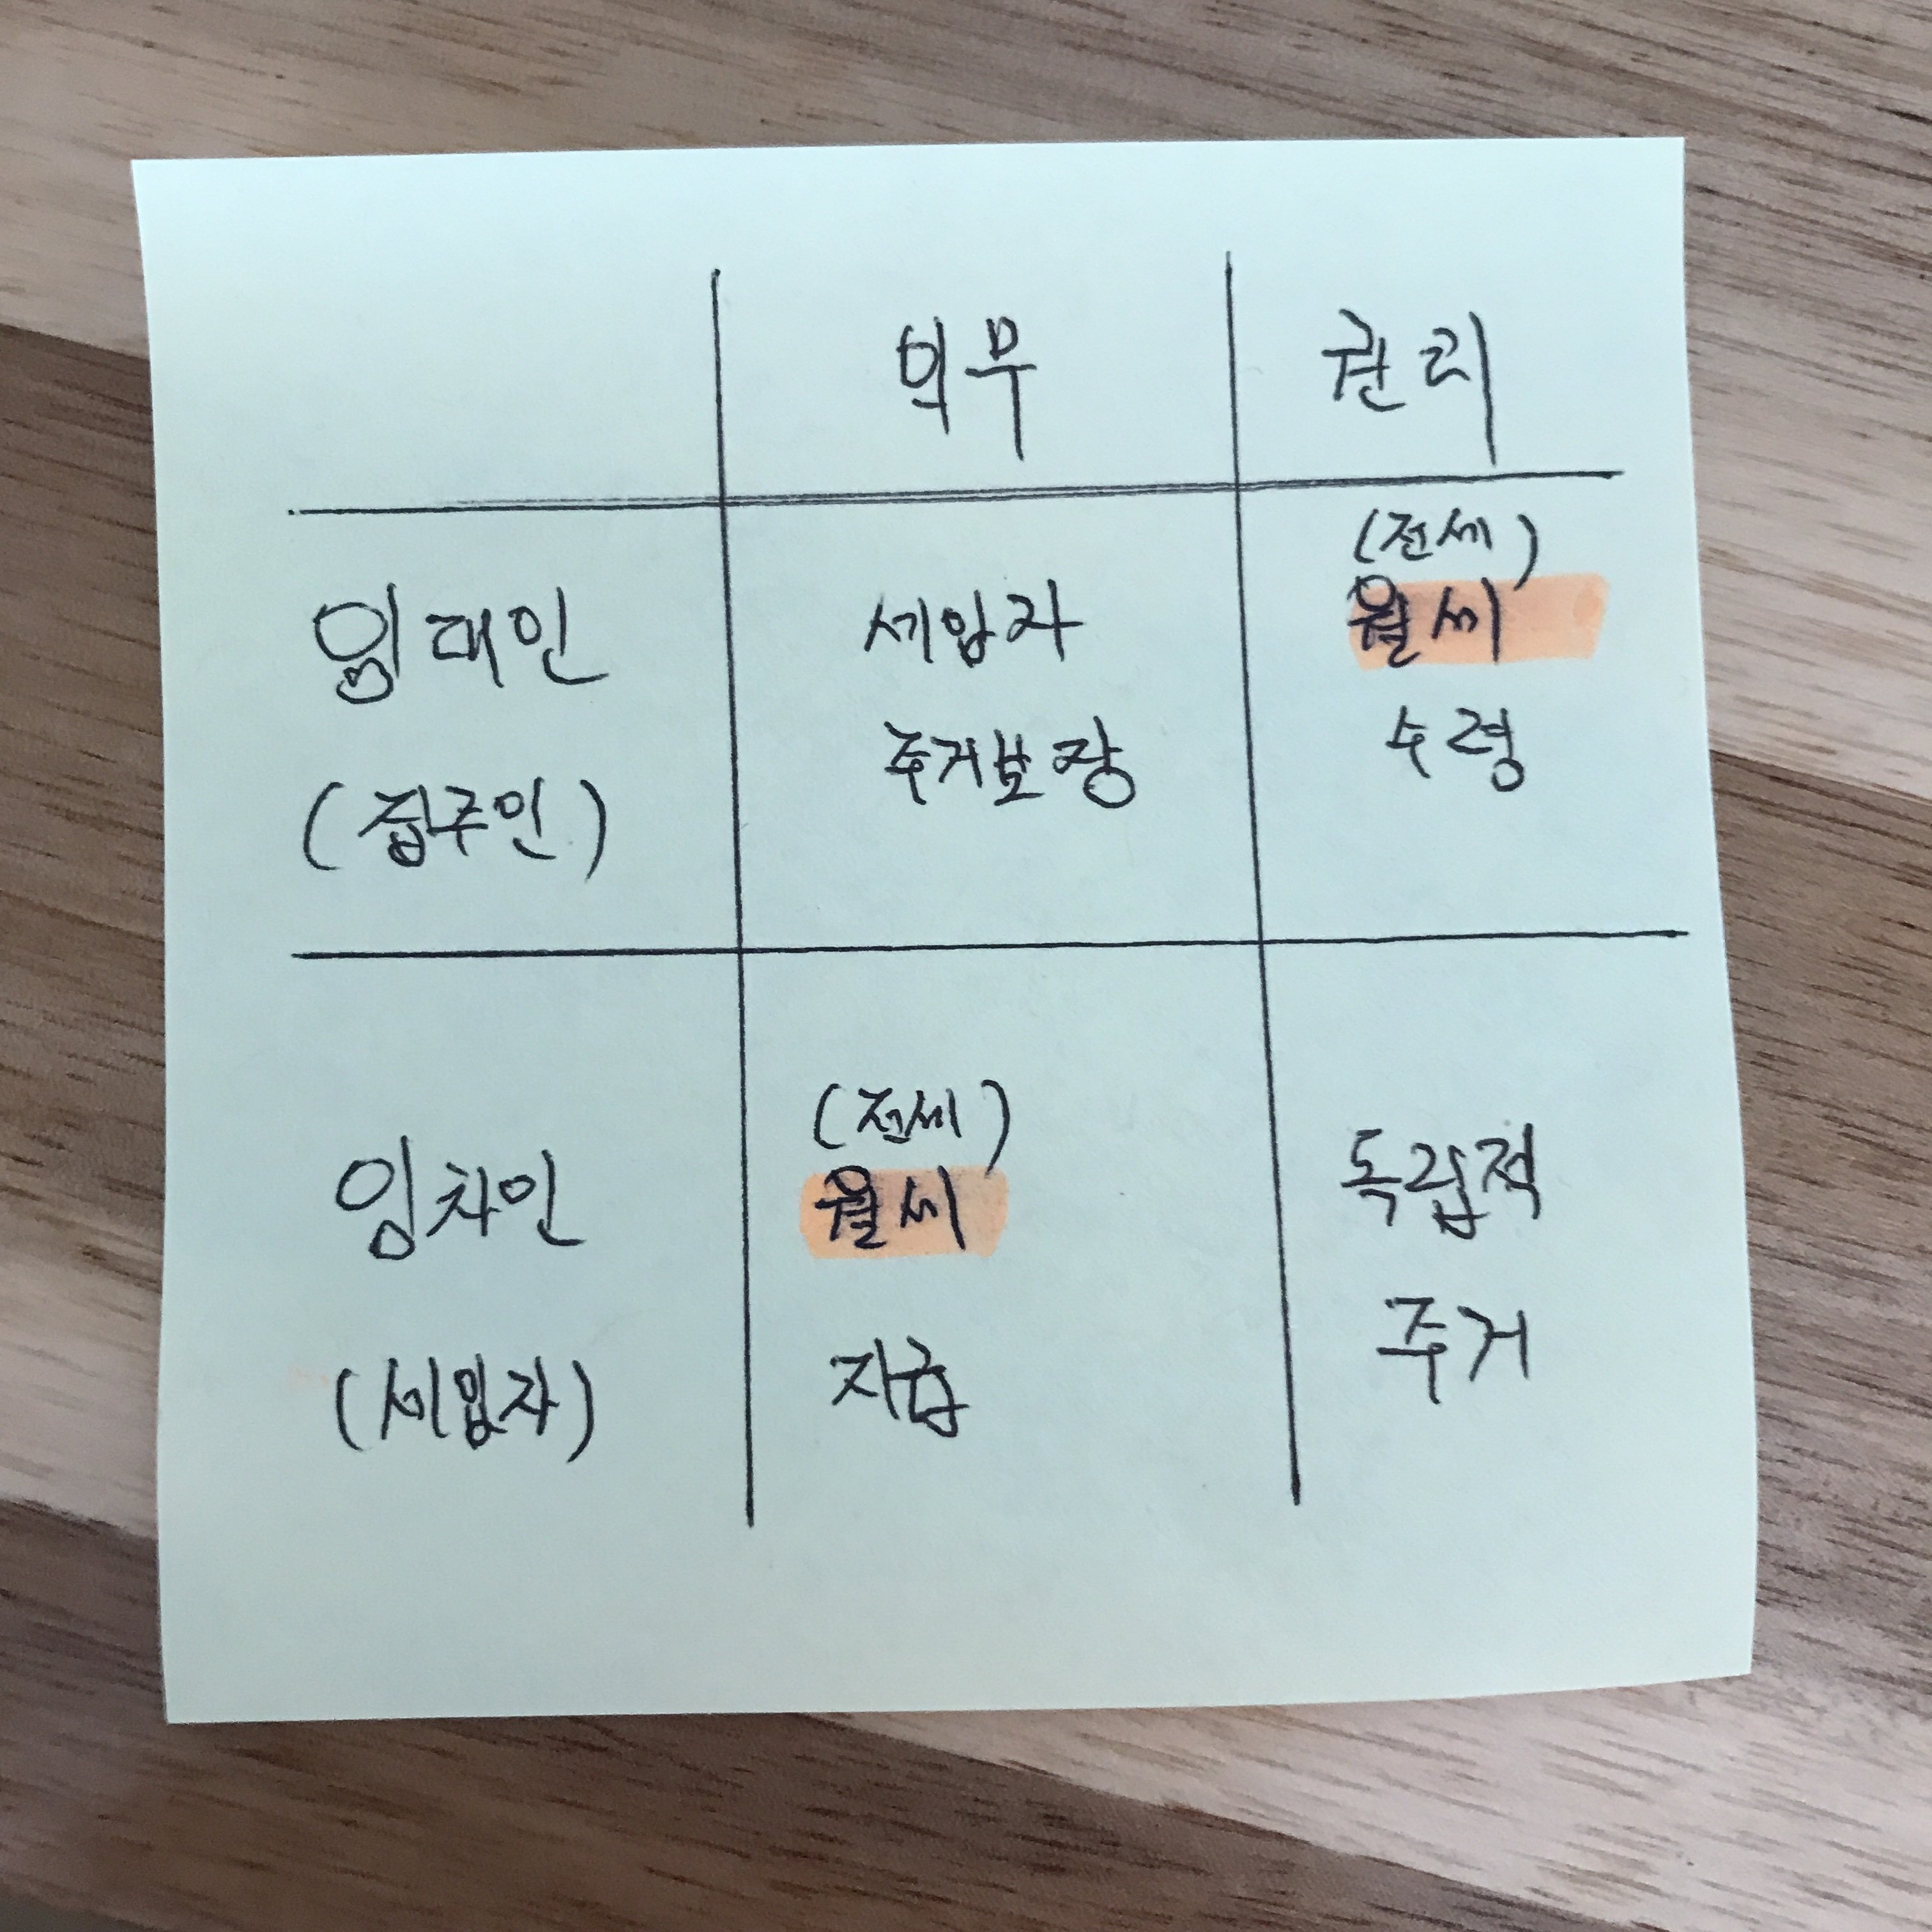 의무 권리
임대인 세입자 (전세)
월세
(집주인) 주거보장 수령
임차인 (전세) 독립적
월세
(세입자) 지급 주거